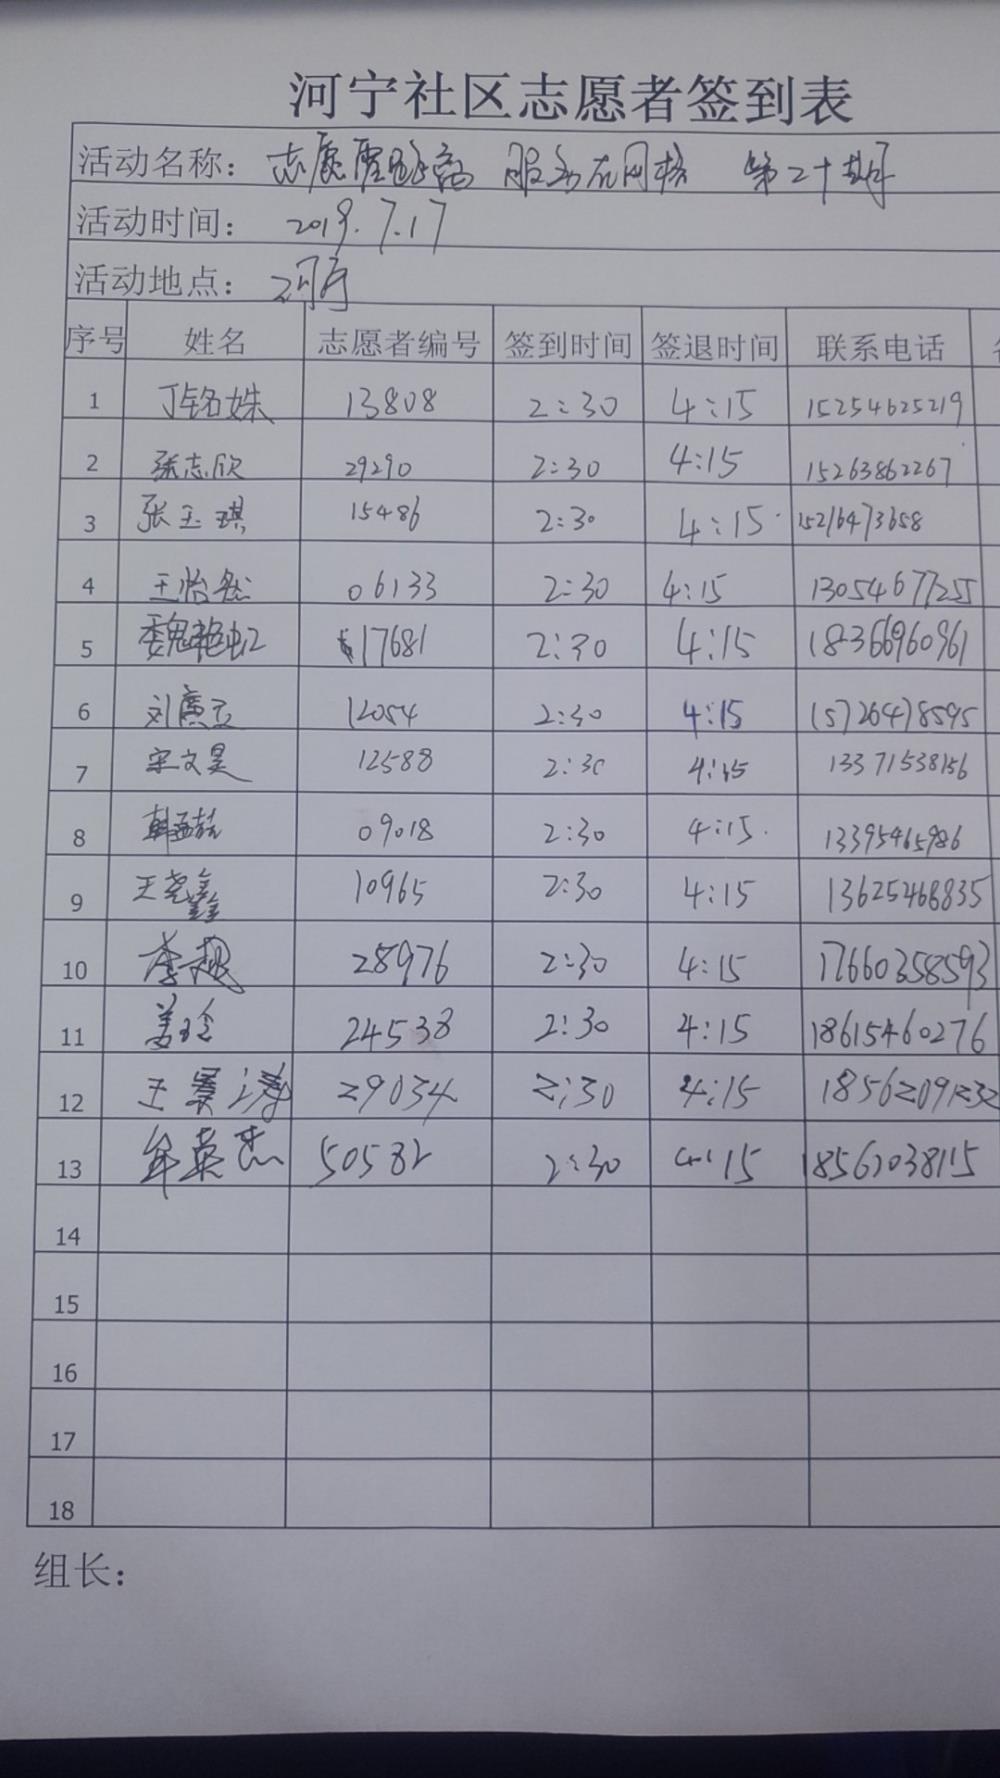 河宁社区志愿者签到表
活动名称： 志愿 服务在网格 第二十期
活动时间： 2019.7.17
活动地点：
序号 姓名 志愿者编号 签到时间 签退时间 联系电话
1 丁铭姝 13808 2:30 4:15 15254625219
2 张志欣 29290 2:30 4:15 15263862267
3 张玉琪 15486 2:30 4:15 15216473658
4 王怡然 06133 2:30 4:15 13054677255
5 魏艳虹 17681 2:30 4:15 18366960961
6 刘 12054 2:30 4:15 15726478595
7 宋文昊 12588 2:30 4:15 13371538156
8 韩 09018 2:30 4:15 13395465986
9 王尧鑫 10965 2:30 4:15 13625468835
10 李 28976 2:30 4:15 17660358593
11 姜玲 24538 2:30 4:15 18615460276
12 王景涛 29034 2:30 4:15 18562091232
13 牟英杰 50582 2:30 4:15 18562038115
14
15
16
17
18
组长：